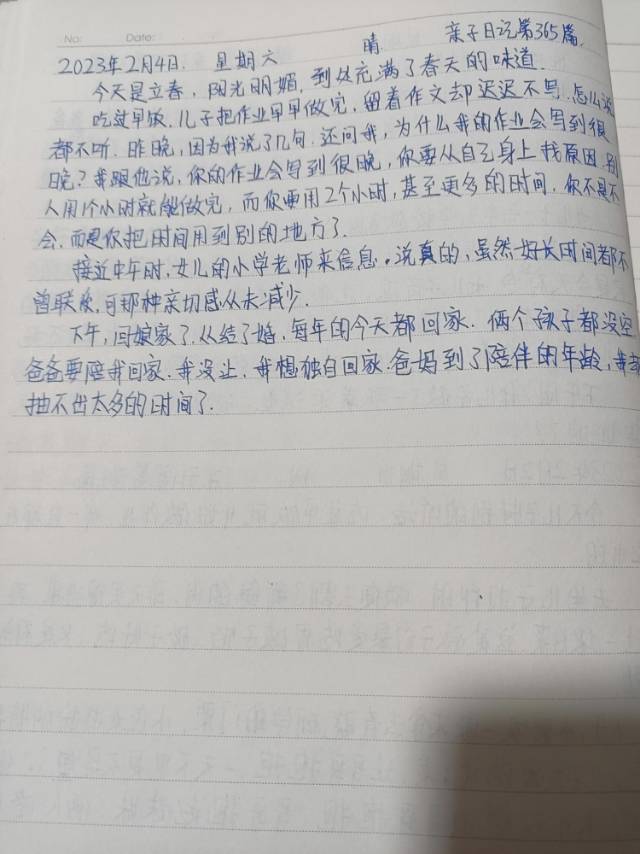 No: Date:
亲子日记第365篇.
2023年2月4日. 星期六 晴.
今天是立春,阳光明媚,到处充满了春天的味道.
吃过早饭,儿子把作业早早做完,留着作文却迟迟不写.怎么说
都不听.昨晚,因为我说了几句.还问我,为什么我的作业会写到很
晚?我跟他说,你的作业会写到很晚,你要从自己身上找原因.别
人用1个小时就能做完,而你要用2个小时,甚至更多的时间.你不是不
会,而是你把时间用到别的地方了.
接近中午时,女儿的小学老师来信息。说真的,虽然好长时间都不
曾联系,可那种亲切感从未减少.
下午,回娘家了.从结了婚,每年的今天都回家.俩个孩子都没空
爸爸要陪我回家.我没让.我想独自回家.爸妈到了陪伴的年龄,我却
抽不出太多的时间了.